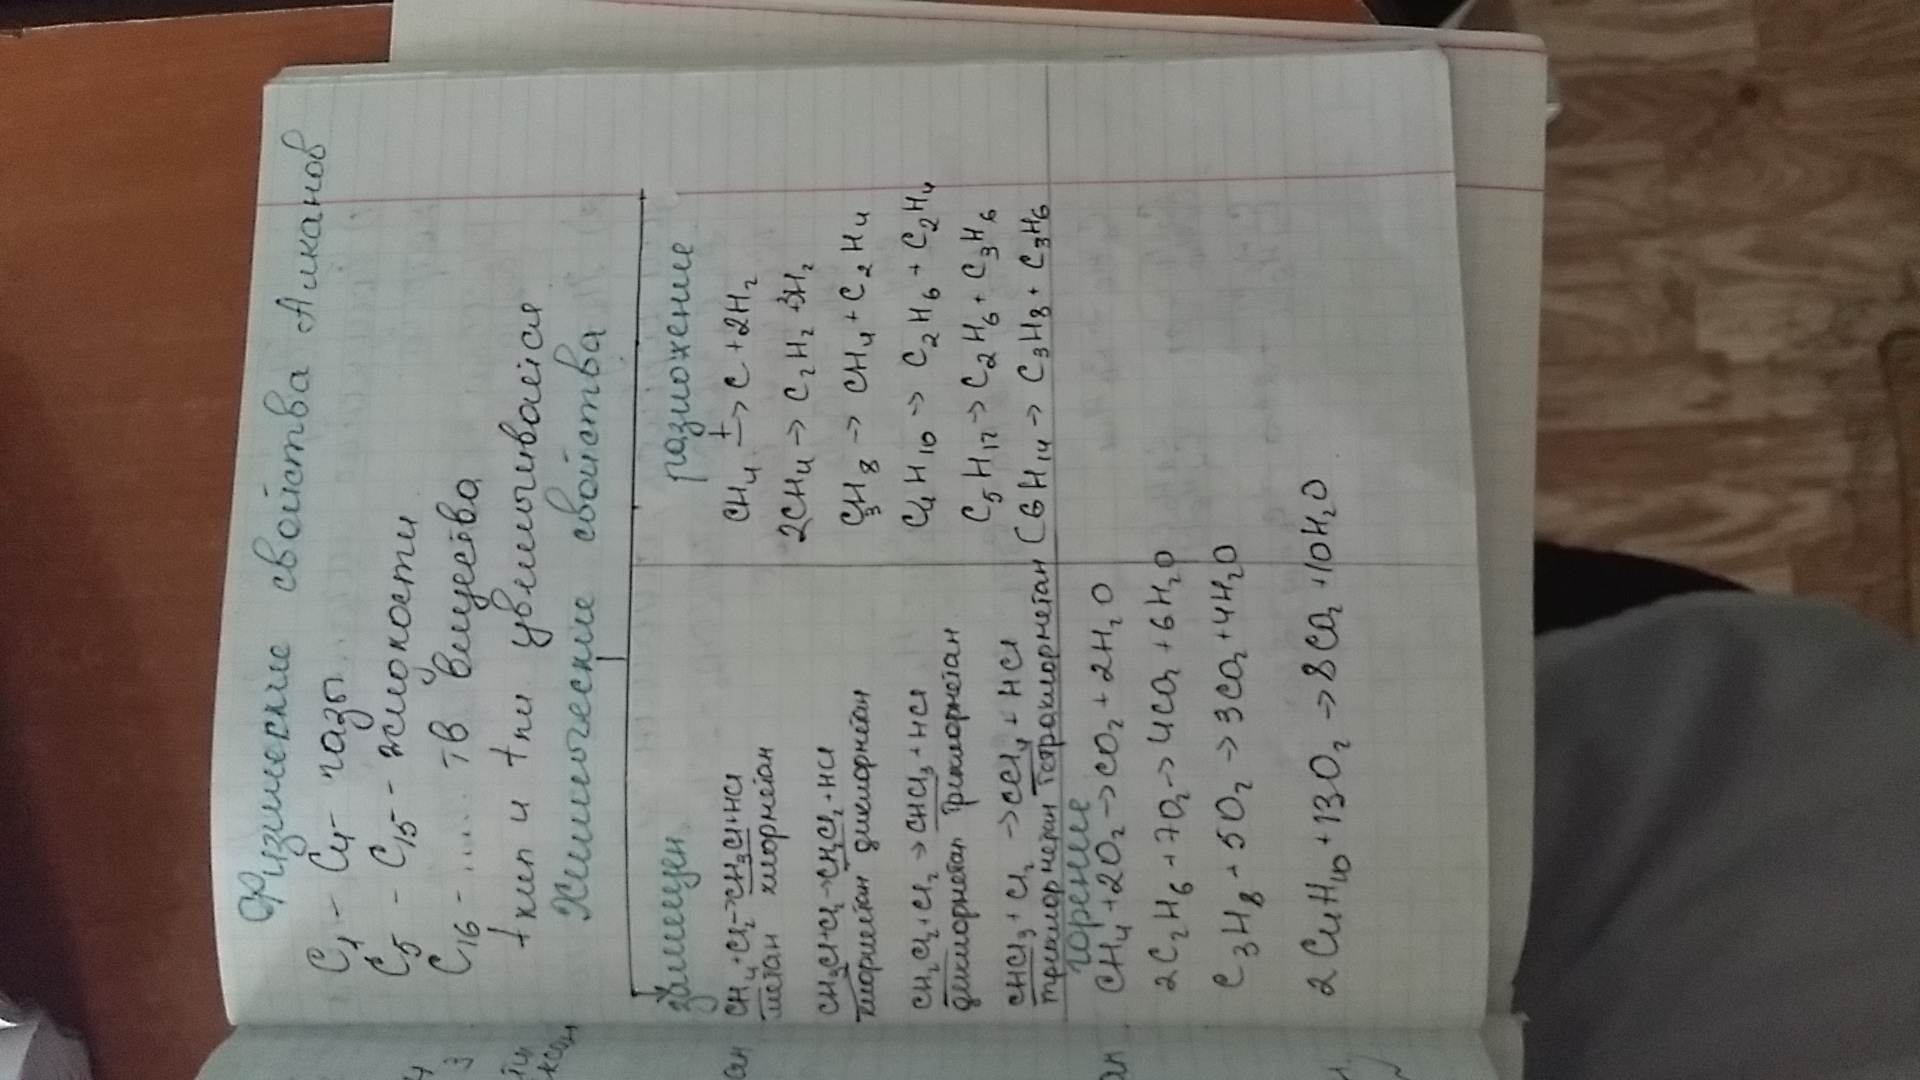 Физические свойства Алканов
C1 - C4 - газы
C5 - C15 - жидкости
C16 - ..... тв вещества
tкип и tпл увеличивается
Химические свойства
замещен.
CH4+Cl2->CH3Cl+HCl
метан хлорметан
CH3Cl+Cl2->CH2Cl2+HCl
хлорметан дихлорметан
CH2Cl2+Cl2->CHCl3+HCl
дихлорметан трихлорметан
CHCl3+Cl2->CCl4+HCl
трихлорметан тетрахлорметан
разложение
CH4 t-> C+2H2
2CH4->C2H2+3H2
C3H8->CH4+C2H4
C4H10->C2H6+C2H4
C5H12->C2H6+C3H6
C6H14->C3H8+C3H6
горение
CH4+2O2->CO2+2H2O
2C2H6+7O2->4CO2+6H2O
C3H8+5O2->3CO2+4H2O
2C4H10+13O2->8CO2+10H2O